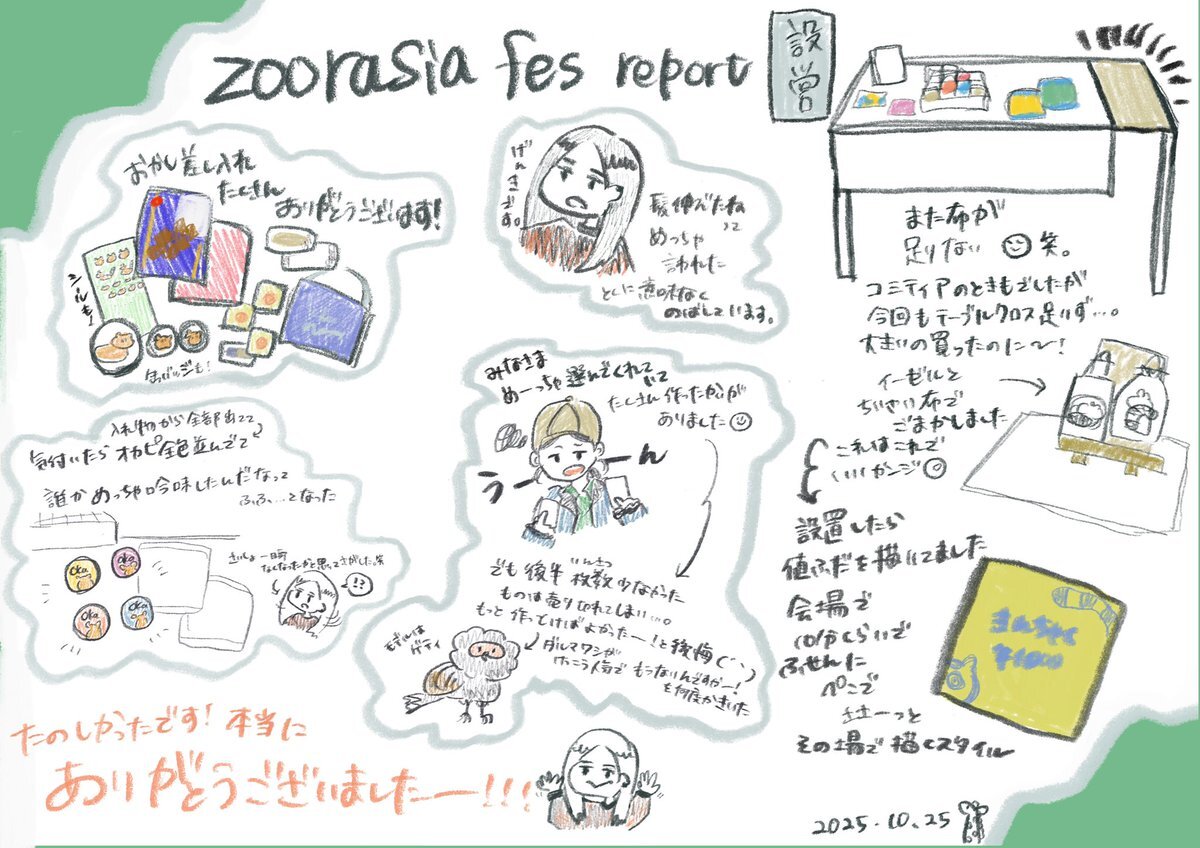 zoorasia fes report
おかし差し入れ
たくさん
ありがとうございます!
シールも!
缶バッジも!
げんきです。
髪伸びたね
って
めっちゃ
言われた
とくに意味なく
のばしています。
設営
また布が
足りない 笑。
コミティアのときもでしたが
今回もテーブルクロス足りず…。
大きいの買ったのに〜!
イーゼルと
ちいさい布で
ごまかしました
これはこれで
いいカンジ
設置したら
値ふだを描いてました
会場で
10分くらいで
ふせんた
ぺこで
その場で描くスタイル
きんちゃく
¥1000
みなさま
めーっちゃ選んでくれていて
たくさん作ったかいが
ありました
うーーん
でも後半 枚数少なかった
いんさつ
ものは売り切れてしまい…。
もっと作っとけばよかったー!と後悔
ダルマワシが
けっこう人気で もうないんですかー!
を何度かきいた
モデルは
入れ物から全部出てて
気付いたらオカピ全色並んでて
誰かめっちゃ吟味したんだなって
ふふ…となった
さいしょ一瞬
なくなったかと思ってさがした。笑
!?
oka
oka
oka
oka
たのしかったです!本当に
ありがとうございましたー!!!
2025.10.25